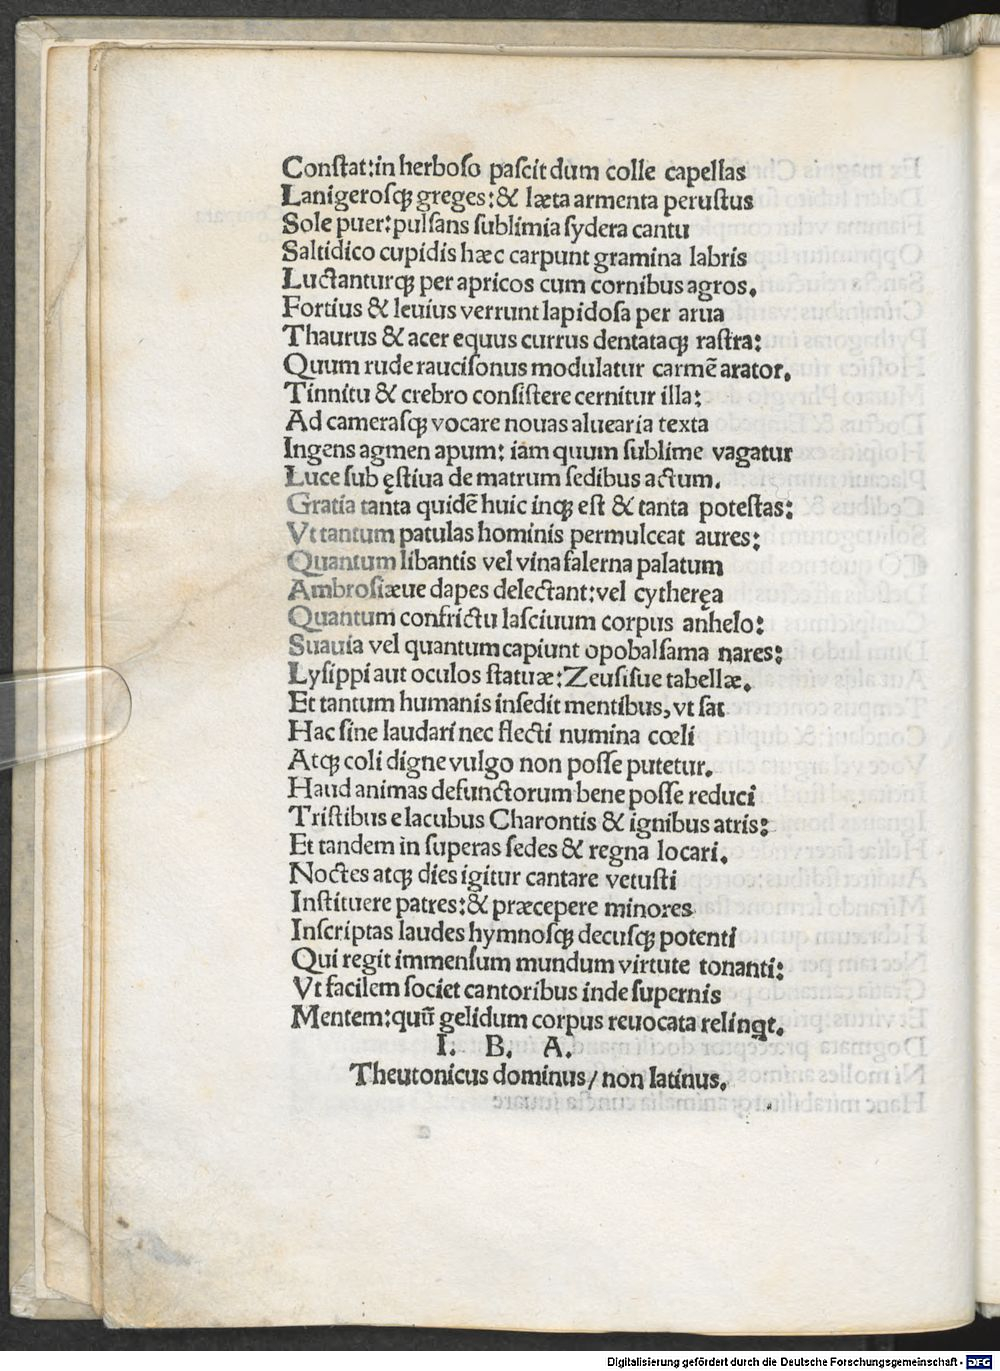 Conſtat:in herboſo paſcit dum colle capellas
Lanigeroſqꝫ greges:& læta armenta peruſtus
Sole puer:pulſans ſublimia ſydera cantu
Saltidico cupidis hæc carpunt gramina labris
Luctanturqꝫ per apricos cum cornibus agros.
Fortius & leuius verrunt lapidoſa per arua
Thaurus & acer equus currus dentataqꝫ raſtra:
Quum rude rauciſonus modulatur carmē arator.
Tinnitu & crebro conſiſtere cernitur illa:
Ad cameraſqꝫ vocare nouas aluearia texta
Ingens agmen apum: iam quum ſublime vagatur
Luce ſub ęſtiua de matrum ſedibus actum.
Gratia tanta quidē huic inqꝫ eſt & tanta poteſtas:
Vt tantum patulas hominis permulceat aures:
Quantum libantis vel vina falerna palatum
Ambroſiæue dapes delectant:vel cytheręa
Quantum confrictu laſciuum corpus anhelo:
Suauia vel quantum capiunt opobalſama nares:
Lyſippi aut oculos ſtatuæ:Zeuſiſue tabellæ.
Et tantum humanis inſedit mentibus, vt ſat
Hac ſine laudari nec flecti numina cœli
Atqꝫ coli digne vulgo non poſſe putetur.
Haud animas defunctorum bene poſſe reduci
Triſtibus e lacubus Charontis & ignibus atris:
Et tandem in ſuperas ſedes & regna locari.
Noctes atqꝫ dies igitur cantare vetuſti
Inſtituere patres:& præcepere minores
Inſcriptas laudes hymnoſqꝫ decuſqꝫ potenti
Qui regit immenſum mundum virtute tonanti:
Vt facilem ſociet cantoribus inde ſupernis
Mentem:quū gelidum corpus reuocata relinqt.
I. B. A.
Theutonicus dominus/ non latinus.
Digitalisierung gefördert durch die Deutsche Forschungsgemeinschaft - DFG